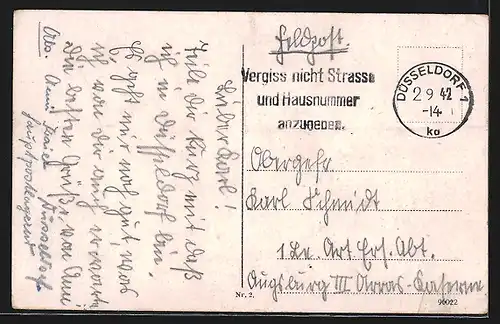 Lieber Karl!
Teile dir kurz mit daß
ich in Düsseldorf bin.
Es geht mir noch gut, was
ich von dir auch erwarte
Die besten Grüße von Anni
Abs. Anni Düsseldorf
Hauptpostlagernd
Feldpost.
Vergiss nicht Strasse
und Hausnummer
anzugeben.
DÜSSELDORF 1
2 9 42
-14
ka
Obergefr
Karl Schmidt
1 Le. Art. Ers. Abt.
Augsburg III Arras-Kaserne
Nr. 2.
90022